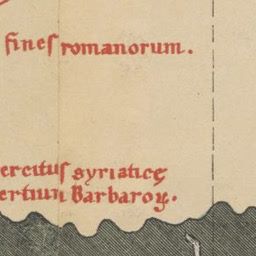 fines romanorum.
ercitus syriatice
ertium Barbaroꝝ.